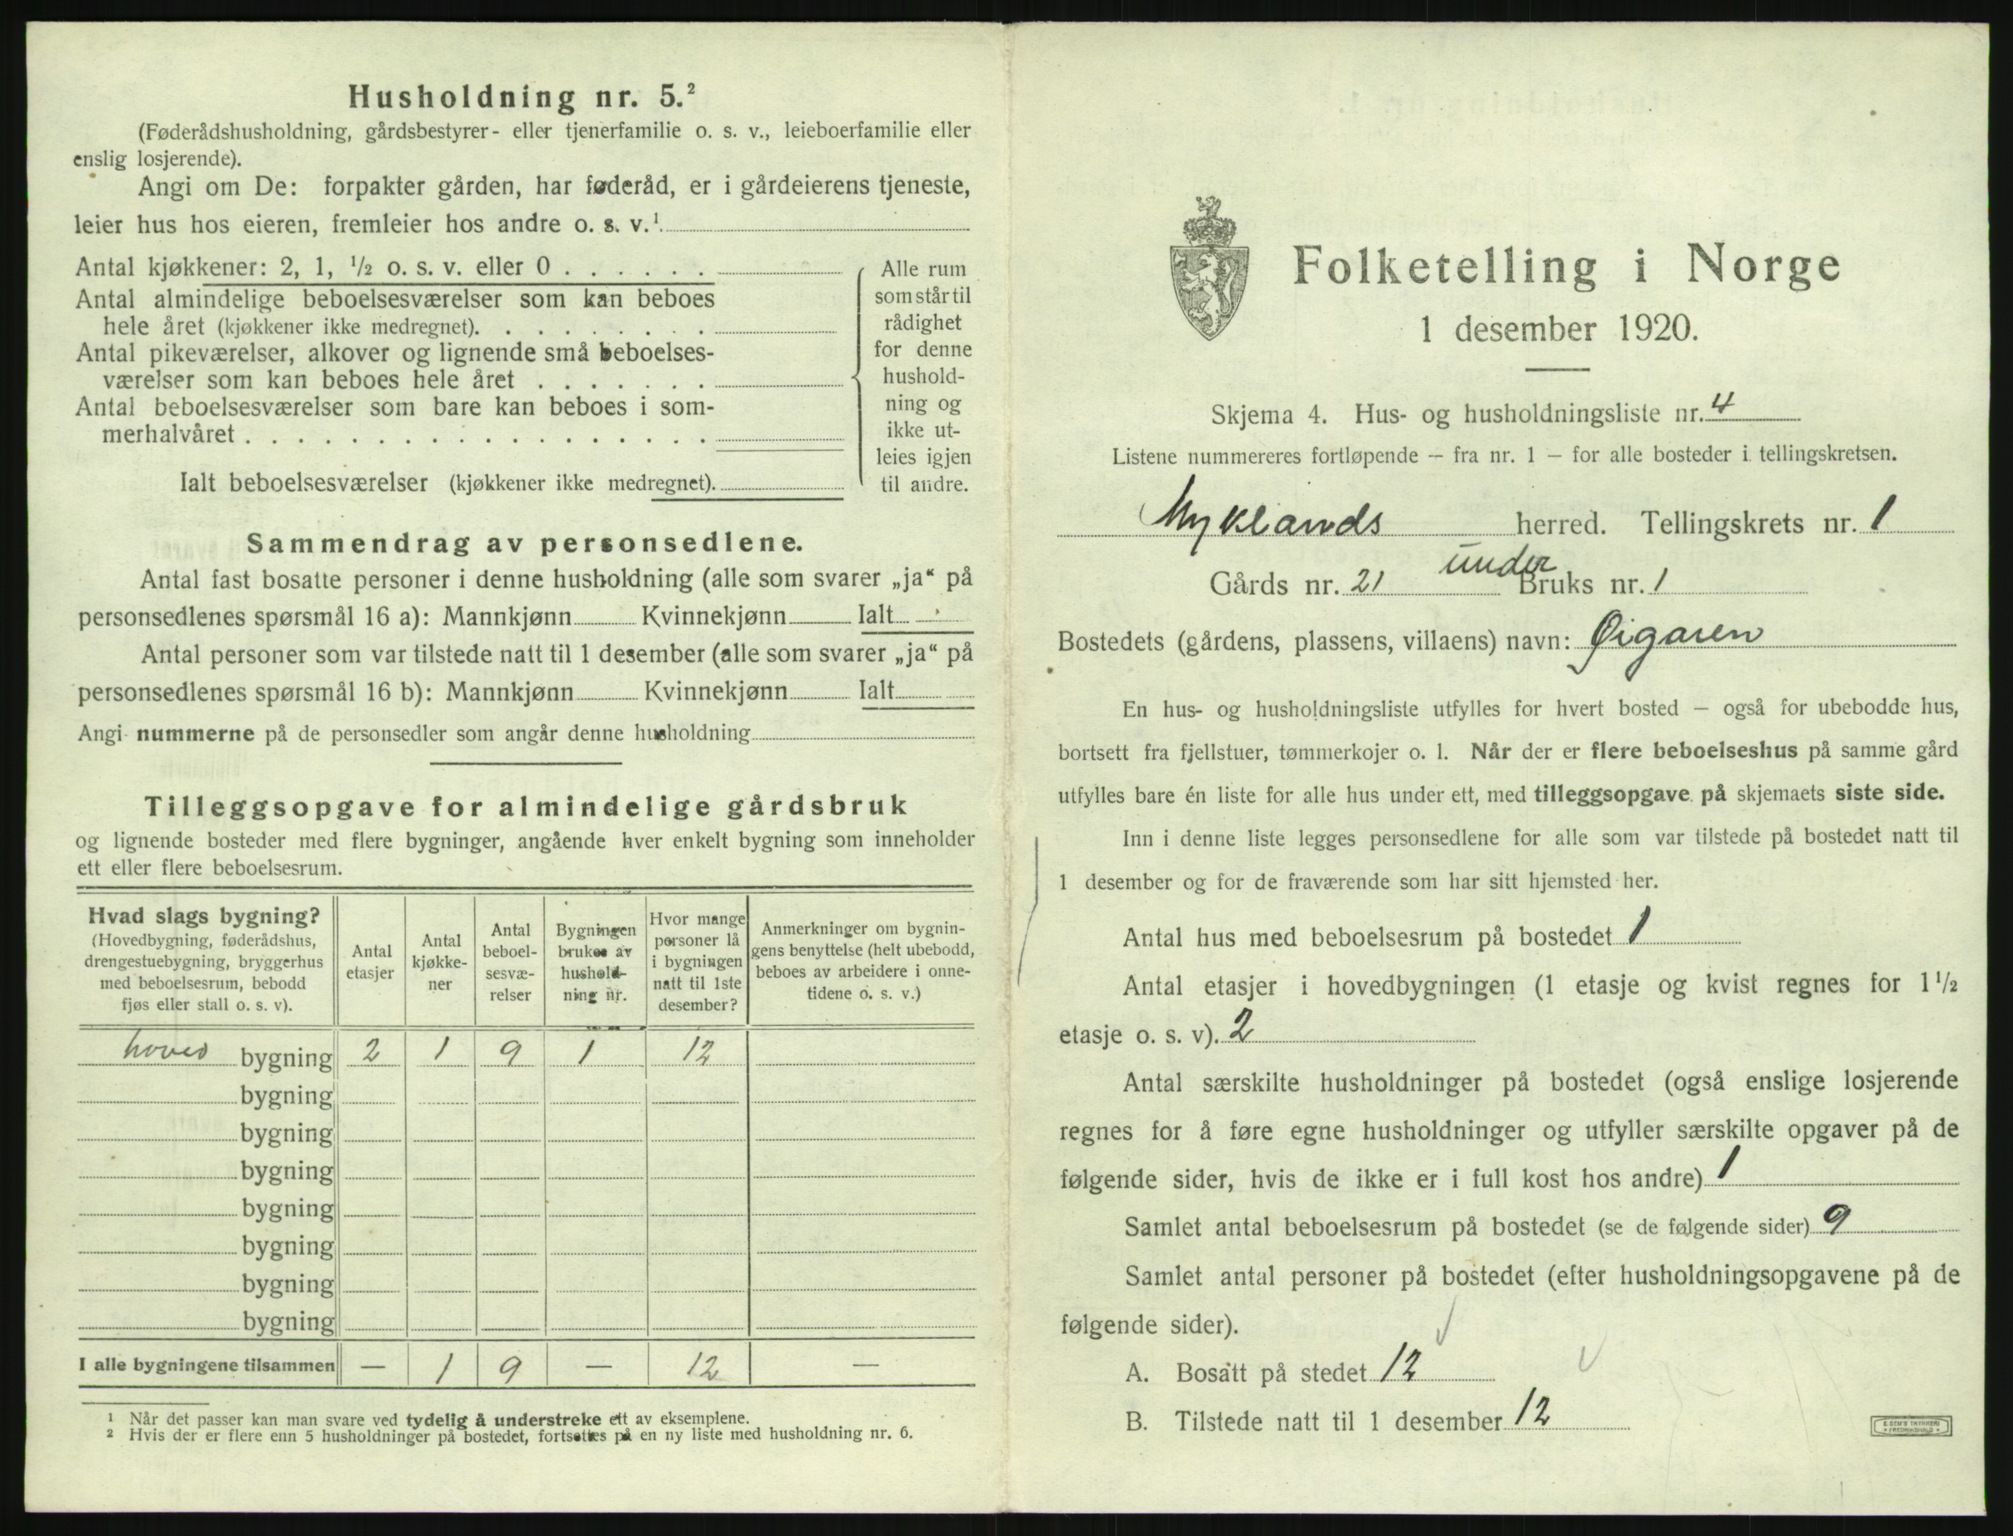 Husholdning nr. 5.²
(Føderådshusholdning, gårdsbestyrer- eller tjenerfamilie o. s. v., leieboerfamilie eller
enslig losjerende).
Angi om De: forpakter gården, har føderåd, er i gårdeierens tjeneste,
leier hus hos eieren, fremleier hos andre o. s. v.¹
Antal kjøkkener: 2, 1, ½ o. s. v. eller 0 . . . . . .
Antal almindelige beboelsesværelser som kan beboes
hele året (kjøkkener ikke medregnet). . . . . . . . .
Antal pikeværelser, alkover og lignende små beboelses-
værelser som kan beboes hele året . . . . . . .
Antal beboelsesværelser som bare kan beboes i som-
merhalvåret . . . . . . . . . . . . . . . . . .
Ialt beboelsesværelser (kjøkkener ikke medregnet).
Alle rum
som står til
rådighet
for denne
hushold-
ning og
ikke ut-
leies igjen
til andre.
Sammendrag av personsedlene.
Antal fast bosatte personer i denne husholdning (alle som svarer „ja“ på
personsedlenes spørsmål 16 a): Mannkjønn Kvinnekjønn Ialt
Antal personer som var tilstede natt til 1 desember (alle som svarer „ja“ på
personsedlenes spørsmål 16 b): Mannkjønn Kvinnekjønn Ialt
Angi nummerne på de personsedler som angår denne husholdning
Tilleggsopgave for almindelige gårdsbruk
og lignende bosteder med flere bygninger, angående hver enkelt bygning som inneholder
ett eller flere beboelsesrum.
Hvad slags bygning?
(Hovedbygning, føderådshus,
drengestuebygning, bryggerhus
med beboelsesrum, bebodd
fjøs eller stall o. s. v).
Antal
etasjer
Antal
kjøkke-
ner
Antal
beboel-
sesvæ-
relser
Bygningen
brukes av
hushold-
ning nr.
Hvor mange
personer lå
i bygningen
natt til 1ste
desember?
Anmerkninger om bygnin-
gens benyttelse (helt ubebodd,
beboes av arbeidere i onne-
tidene o. s. v.)
hoved bygning 2 1 9 1 12
bygning
bygning
bygning
bygning
bygning
bygning
bygning
I alle bygningene tilsammen — 1 9 — 12 —
¹ Når det passer kan man svare ved tydelig å understreke ett av eksemplene.
² Hvis der er flere enn 5 husholdninger på bostedet, fortsettes på en ny liste med husholdning nr. 6.
Folketelling i Norge
1 desember 1920.
Skjema 4. Hus- og husholdningsliste nr. 4
Listene nummereres fortløpende – fra nr. 1 – for alle bosteder i tellingskretsen.
Myklands herred. Tellingskrets nr. 1
under
Gårds nr. 21 Bruks nr. 1
Bostedets (gårdens, plassens, villaens) navn: Øigaren
En hus- og husholdningsliste utfylles for hvert bosted – også for ubebodde hus,
bortsett fra fjellstuer, tømmerkojer o. l. Når der er flere beboelseshus på samme gård
utfylles bare én liste for alle hus under ett, med tilleggsopgave på skjemaets siste side.
Inn i denne liste legges personsedlene for alle som var tilstede på bostedet natt til
1 desember og for de fraværende som har sitt hjemsted her.
Antal hus med beboelsesrum på bostedet 1
Antal etasjer i hovedbygningen (1 etasje og kvist regnes for 1½
etasje o. s. v). 2
Antal særskilte husholdninger på bostedet (også enslige losjerende
regnes for å føre egne husholdninger og utfyller særskilte opgaver på de
følgende sider, hvis de ikke er i full kost hos andre) 1
Samlet antal beboelsesrum på bostedet (se de følgende sider) 9
Samlet antal personer på bostedet (efter husholdningsopgavene på de
følgende sider).
A. Bosatt på stedet 12
B. Tilstede natt til 1 desember 12